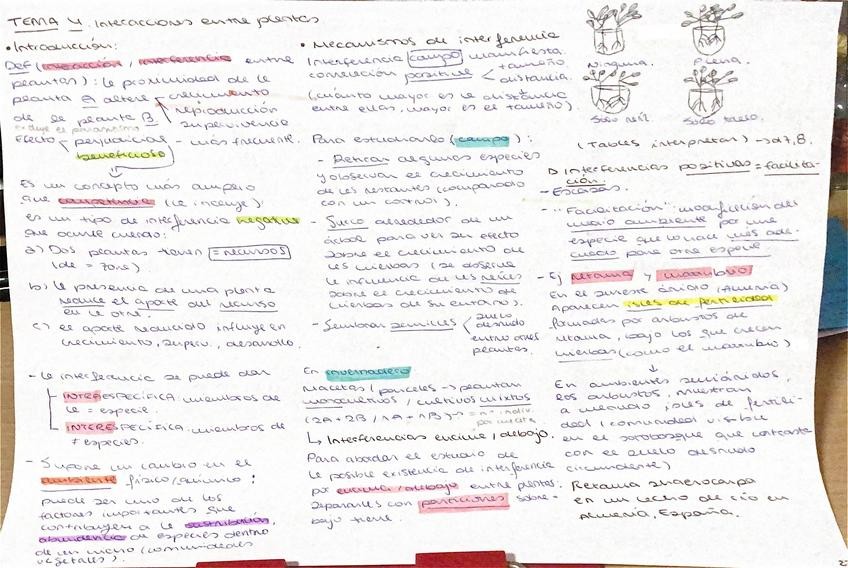 TEMA 4. Interacciones entre plantas
• Introducción:
Def (interacción, interferencia entre
plantas): la proximidad de la
planta A altera crecimiento
de la planta B reproducción
supervivencia
excluye el parasitismo
Efecto perjudicial - más frecuente.
beneficioso
Es un concepto más amplio
que competencia (la incluye):
es un tipo de interferencia negativa
que ocurre cuando:
a) Dos plantas tienen = recursos
(de = zona)
b) la presencia de una planta
reduce el aporte del recurso
en la otra.
c) el aporte reducido influye en
crecimiento, superv., desarrollo.
- La interferencia se puede dar
INTRAESPECÍFICA: miembros de
la = especie.
INTERESPECÍFICA: miembros de
≠ especies.
- Supone un cambio en el
ambiente físico/químico:
puede ser uno de los
factores importantes que
contribuyen a la distribución,
abundancia de especies dentro
de un mismo (comunidades
vegetales).
• Mecanismos de interferencia
Interferencia campo manifiesta
correlación positiva tamaño.
distancia.
(cuánto mayor es la distancia
entre ellas, mayor es el tamaño).
Para estudiarlo (campo):
- Retirar algunas especies
y observar el crecimiento
de las restantes (comparando
con un control).
- Surco alrededor de un
árbol para ver su efecto
sobre el crecimiento de
las hierbas (se observa
la influencia de las raíces
sobre el crecimiento de
hierbas de su entorno).
- Sembrar semillas suelo
desnudo
entre otras
plantas.
En invernadero
Macetas/parcelas → plantan
monocultivos/cultivos mixtos
(2A+2B/1A+1B) → = nº indiv.
por maceta
↳ Interferencias encima/debajo.
Para abordar el estudio de
la posible existencia de interferencia
por encima/debajo entre plantas:
separarlas con particiones sobre-
bajo tierra.
Ninguna. Plena.
Solo raíz. Solo tallo.
(Tablas interpretar) → d7,8.
D Interferencias positivas = facilita-
ción:
- Escasas.
- "Facilitación": modificación del
medio ambiente por una
especie que lo hace más ade-
cuado para otra especie
- Ej retama y marrubio
En el sureste árido (Almería)
aparecen islas de fertilidad
formadas por arbustos de
retama, bajo los que crecen
hierbas (como el marrubio)
↓
En ambientes semiáridos,
los arbustos, muestran
a menudo, islas de fertili-
dad (comunidad visible
en el sotobosque que contraste
con el suelo desnudo
circundante)
Retama sphaerocarpa
en un lecho de río en
Almería, España.